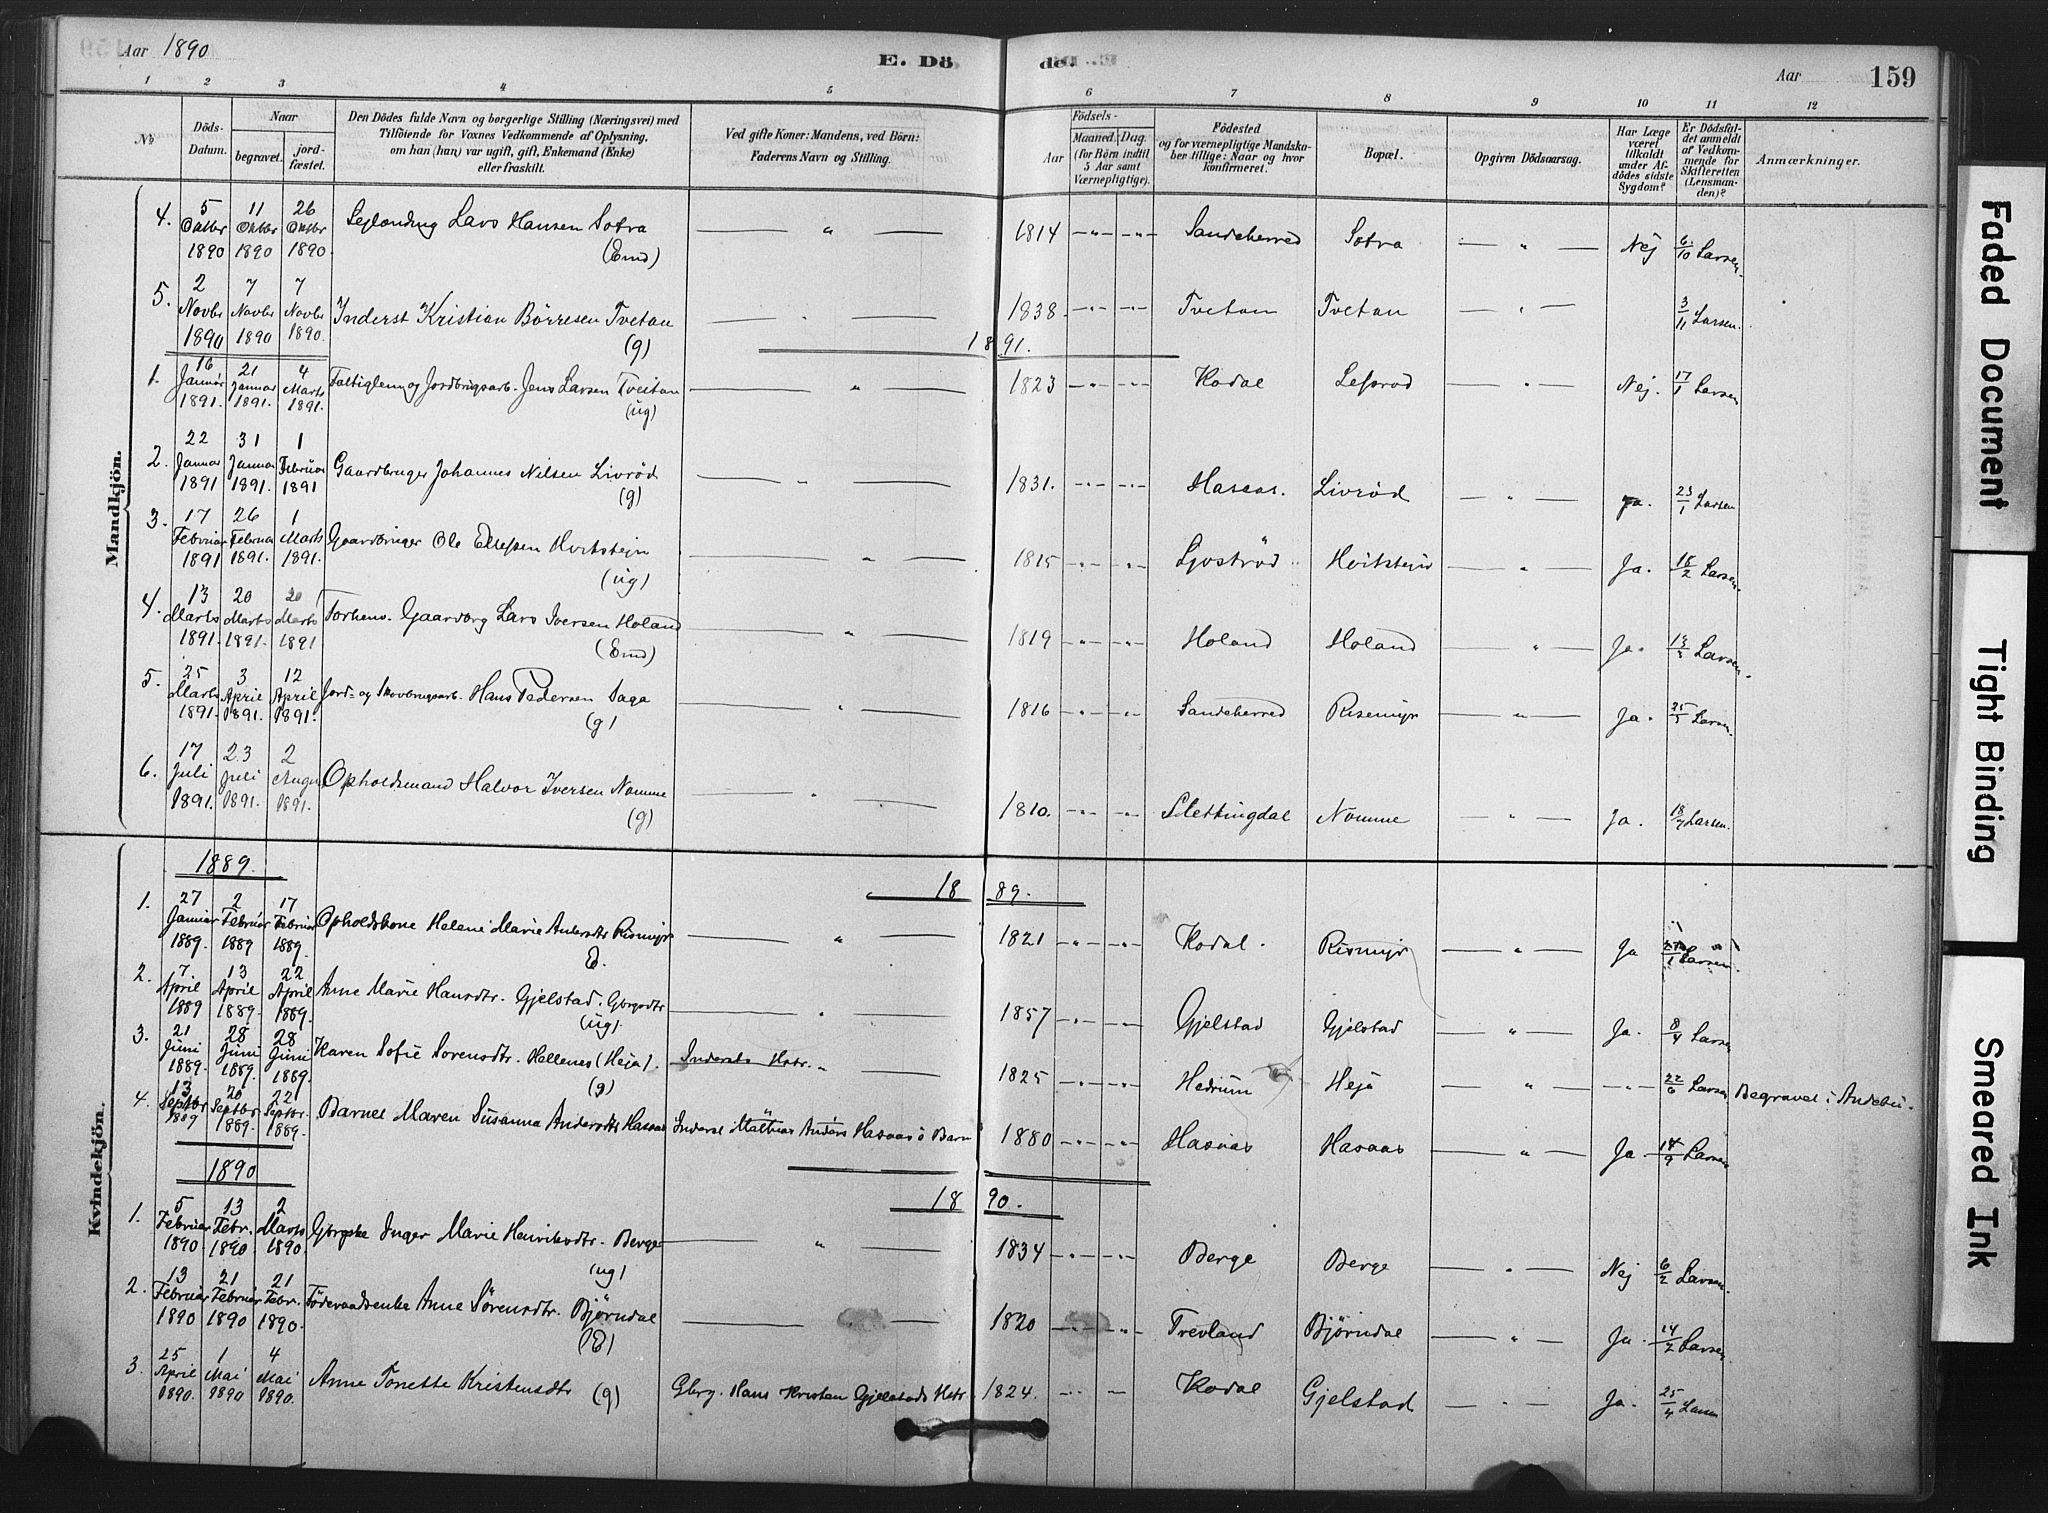 Aar 1890
E. Dö
de.
Aar
159
1 2 3 4 5 6 7 8 9 10 11 12
No
Döds-Datum.
Naar
begravet.
jord-fæstet.
Den Dödes fulde Navn og borgerlige Stilling (Næringsvei) med
Tilföiende for Voxnes Vedkommende af Oplysning,
om han (hun) var ugift, gift, Enkemand (Enke)
eller fraskilt.
Ved gifte Koner: Mandens, ved Börn:
Faderens Navn og Stilling.
Födsels-
Aar
Maaned. Dag.
(for Börn indtil
5 Aar samt
Værnepligtige).
Födested
og for værnepligtige Mandska-
ber tillige: Naar og hvor
konfirmeret.
Bopæl.
Opgiven Dödsaarsag.
Har Læge
været
tilkaldt
under Af-
dödes sidste
Sygdom?
Er Dödsfal-
det anmeldt
af Vedkom-
mende for
Skifteretten
(Lensman-
den)?
Anmærkninger.
Mandkjön.
4. 5 Oktbr 1890 11 Oktbr 1890 26 Oktbr 1890. Lars Hansen Sotra (Emd) — " — 1814 Sandeherred Sotra — " — Nej 6/10 Larsen.
5. 2 Novbr 1890 7 Novbr 1890 7 Novbr 1890. Inderst Kristian Börresen Tvetan (g) — " — 1838. Tvetan Tvetan — " — 3/11 Larsen.
1891.
1. 16 Januar 1891. 21 Januar 1891. 4 Marts 1891. Fattiglem og Jordbrugsarb. Jens Larsen Tveitan (ug) — " — 1823 Kodal — " — Nej. 17/1 Larsen
2. 22 Januar 1891 31 Januar 1891. 1 Februar 1891 Gaardbruger Johannes Nilsen Livröd (g) — " — 1831. Livröd — " — ja. 23/1 Larsen
3. 17 Februar 1891 26 Februar 1891. 1 Marts 1891. Gaardbruger Ole Hvitstejn (ug) — " — 1815 Hvitstejn — " — Ja. 18/2 Larsen.
4. 13 Marts 1891. 20 Marts 1891. 20 Marts 1891 Forhenv. Gaardbrg Lars Iversen Holand (Emd) — " — 1819 Holand Holand — " — Ja. Larsen.
5. 25 Marts 1891. 3 April 1891. 12 April 1891. Jord- og Skovbrugsarb. Hans Pedersen Saga (g) — " — 1816 Sandeherred Risemyr — " — Ja. Larsen.
6. 17 Juli 1891. 23 Juli 1891. 2 August 1891. Opholdsmand Halvor Iversen Nomme (g) — " — 1810. Slettingdal Nomme — " — Ja. 18/7 Larsen.
Kvindekjön.
1889.
1889.
1. 27 Januar 1889. 2 Februar 1889 17 Februar 1889. Opholdskone Helene Marie Andersdtr Rismyr E. — " — 1821 Kodal. Rismyr — " — Ja Larsen.
2. 7 April 1889 13 April 1889. 22 April 1889. Anne Marie Hansdtr. Gjelstad. Gbrgsdtr (ug) — " — 1857 Gjelstad Gjelstad — " — Ja. 8/4 Larsen
3. 21 Juni 1889. 28 Juni 1889. 28 Juni 1889. Karen Sofie Sorensdtr. Hellenes (Heja). (g) Inderst Hstr. 1825 Hedrum Heja — " — 22/6 Larsen Begravet i Andebu.
4. 13 Septbr 1889 20 Septbr 1889. 22 Septbr. 1889. Barnet Maren Susanna Andersdtr Hasaas Inderst Mathias Anders Hasaas's Barn 1880 Hasaas Hasaas — " — Ja 14/9 Larsen
1890
1890.
1. 5 Februar 1890. 13 Febr. 1890 2 Marts 1890. Inger Marie Henriksdtr. Berge (ug) — " — 1834 Berge Berge — " — Nej 6/2 Larsen.
2. 13 Februar 1890 21 Februar 1890 21 Febr. 1890. Föderaadsenke Anne Sörensdtr. Björndal (E) — " — 1820 Trevland Björndal — " — Ja. 14/2 Larsen.
3. 25 April 1890. 1 Mai 1890 4 Mai 1890. Anne Tonette Kristensdtr (g) Gbrg. Hans Kristian Gjelstads Hstr. 1824. Kodal Gjelstad — " — Ja. 25/4 Larsen
Faded Document
Tight Binding
Smeared Ink